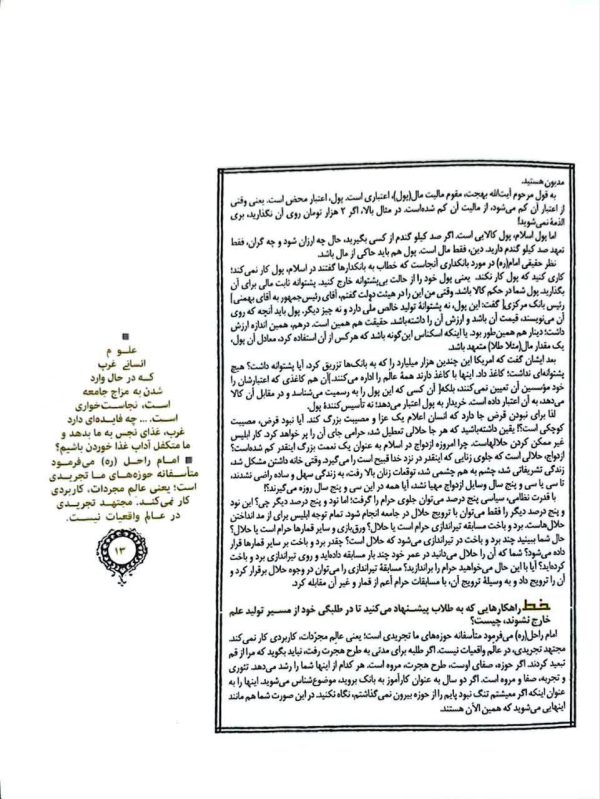 مدیون هستید.
به قول مرحوم آیت‌الله بهجت، مقوم مالیت مال(پول)، اعتباری است. پول، اعتبار محض است. یعنی وقتی
از اعتبار آن کم می‌شود، از مالیت آن کم شده‌است. در مثال بالا، اگر ۲ هزار تومان روی آن نگذارید، بری
الذمة نمی‌شوید!
اما پول اسلام، پول کالایی است. اگر صد کیلو گندم از کسی بگیرید، حال چه ارزان شود و چه گران، فقط
تعهد صد کیلو گندم دارید. دین، فقط مال است. پول هم باید حاکی از مال باشد.
نظر حقیقی امام(ره) در مورد بانکداری آنجاست که خطاب به بانکدارها گفتند در اسلام، پول کار نمی‌کند؛
کاری کنید که پول کار نکند. یعنی پول خود را از حالت بی‌پشتوانه خارج کنید. پشتوانه ثابت مالی برای آن
بگذارید. پول شما در حکم کالا باشد. وقتی من این را در هیئت دولت گفتم، آقای رئیس‌جمهور به آقای بهمنی[
رئیس بانک مرکزی] گفت: این پول، نه پشتوانهٔ تولید خالص ملی دارد و نه چیز دیگر. پول باید آنچه که روی
آن می‌نویسند، قیمت آن باشد و ارزش آن را داشته‌باشد. حقیقت هم همین است. درهم، همین اندازه ارزش
داشت؛ دینار هم همین‌طور بود. یا اینکه اسکناس این‌گونه باشد که هر کس از آن استفاده کرد، معادل آن پول،
یک مقدار مال(مثلا طلا) متعهد باشد.
بعد ایشان گفت که امریکا این چندین هزار میلیارد را که به بانک‌ها تزریق کرد، آیا پشتوانه داشت؟ هیچ
پشتوانه‌ای نداشت؛ کاغذ داد. اینها با کاغذ دارند همهٔ عالم را اداره می‌کنند.]آن هم کاغذی که اعتبارشان را
خود مؤسسین آن تعیین نمی‌کنند، بلکه[ آن کسی که این پول را به رسمیت می‌شناسد و در مقابل آن کالا
می‌دهد، به آن اعتبار داده است. خریدار به پول اعتبار می‌دهد؛ نه تأسیس کنندهٔ پول.
لذا برای نبودن قرض جا دارد که انسان اعلام یک عزا و مصیبت بزرگ کند. آیا نبود قرض، مصیبت
کوچکی است؟! یقین داشته‌باشید که هر جا حلالی تعطیل شد، حرامی جای آن را پر خواهد کرد. کار ابلیس
غیر ممکن کردن حلال‌هاست. چرا امروزه ازدواج در اسلام به عنوان یک نعمت بزرگ اینقدر کم شده‌است؟
ازدواج، حلالی است که جلوی زنایی که اینقدر در نزد خدا قبیح است را می‌گیرد. وقتی خانه داشتن مشکل شد،
زندگی تشریفاتی شد، چشم به هم چشمی شد، توقعات زنان بالا رفت، به زندگی سهل و ساده راضی نشدند،
تا سی یا سی و پنج سال وسایل ازدواج مهیا نشد، آیا همه در این سی و پنج سال روزه می‌گیرند؟!
با قدرت نظامی، سیاسی پنج درصد می‌توان جلوی حرام را گرفت؛ اما نود و پنج درصد دیگر چی؟ این نود
و پنج درصد دیگر را فقط می‌توان با ترویج حلال در جامعه انجام شود. تمام توجه ابلیس برای از مد انداختن
حلال‌هاست. برد و باخت مسابقه تیراندازی حرام است یا حلال؟ ورق‌بازی و سایر قمارها حرام است یا حلال؟
حال شما ببینید چند برد و باخت در تیراندازی می‌شود که حلال است؟ چقدر برد و باخت بر سایر قمارها قرار
داده می‌شود؟ شما که آن را حلال می‌دانید در عمر خود چند بار مسابقه داده‌اید و روی تیراندازی برد و باخت
کرده‌اید؟ آیا با این حال می‌خواهید حرام را براندازید؟ مسابقهٔ تیراندازی را می‌توان در وجوه حلال برقرار کرد و
آن را ترویج داد و به وسیلهٔ ترویج آن، با مسابقات حرام اعم از قمار و غیر آن مقابله کرد.
خط راهکارهایی که به طلاب پیشنهاد می‌کنید تا در طلبگی خود از مسیر تولید علم
خارج نشوند، چیست؟
امام راحل(ره) می‌فرمود متأسفانه حوزه‌های ما تجریدی است؛ یعنی عالم مجرّدات، کاربردی کار نمی‌کند.
مجتهد تجریدی، در عالم واقعیات نیست. اگر طلبه برای مدتی به طرح هجرت رفت، نباید بگوید که مرا از قم
تبعید کردند. اگر حوزه، صفای اوست، طرح هجرت، مروه است. هر کدام از اینها شما را رشد می‌دهد. تئوری
و تجربه، صفا و مروه است. اگر دو سال به عنوان کارآموز به بانک بروید، موضوع‌شناس می‌شوید. اینها را به
عنوان اینکه اگر معیشتم تنگ نبود پایم را از حوزه بیرون نمی‌گذاشتم، نگاه نکنید. در این صورت شما هم مانند
اینهایی می‌شوید که همین الأن هستند.
علوم
انسانی غرب
که در حال وارد
شدن به مزاج جامعه
است، نجاست‌خواری
است. ... چه فایده‌ای دارد
غرب، غذای نجس به ما بدهد و
ما متکفل آداب غذا خوردن باشیم؟
امام راحل (ره) می‌فرمود
متأسفانه حوزه‌های ما تجریدی
است؛ یعنی عالم مجردات، کاربردی
کار نمی‌کند. مجتهد تجریدی
در عالم واقعیات نیست.
۱۳